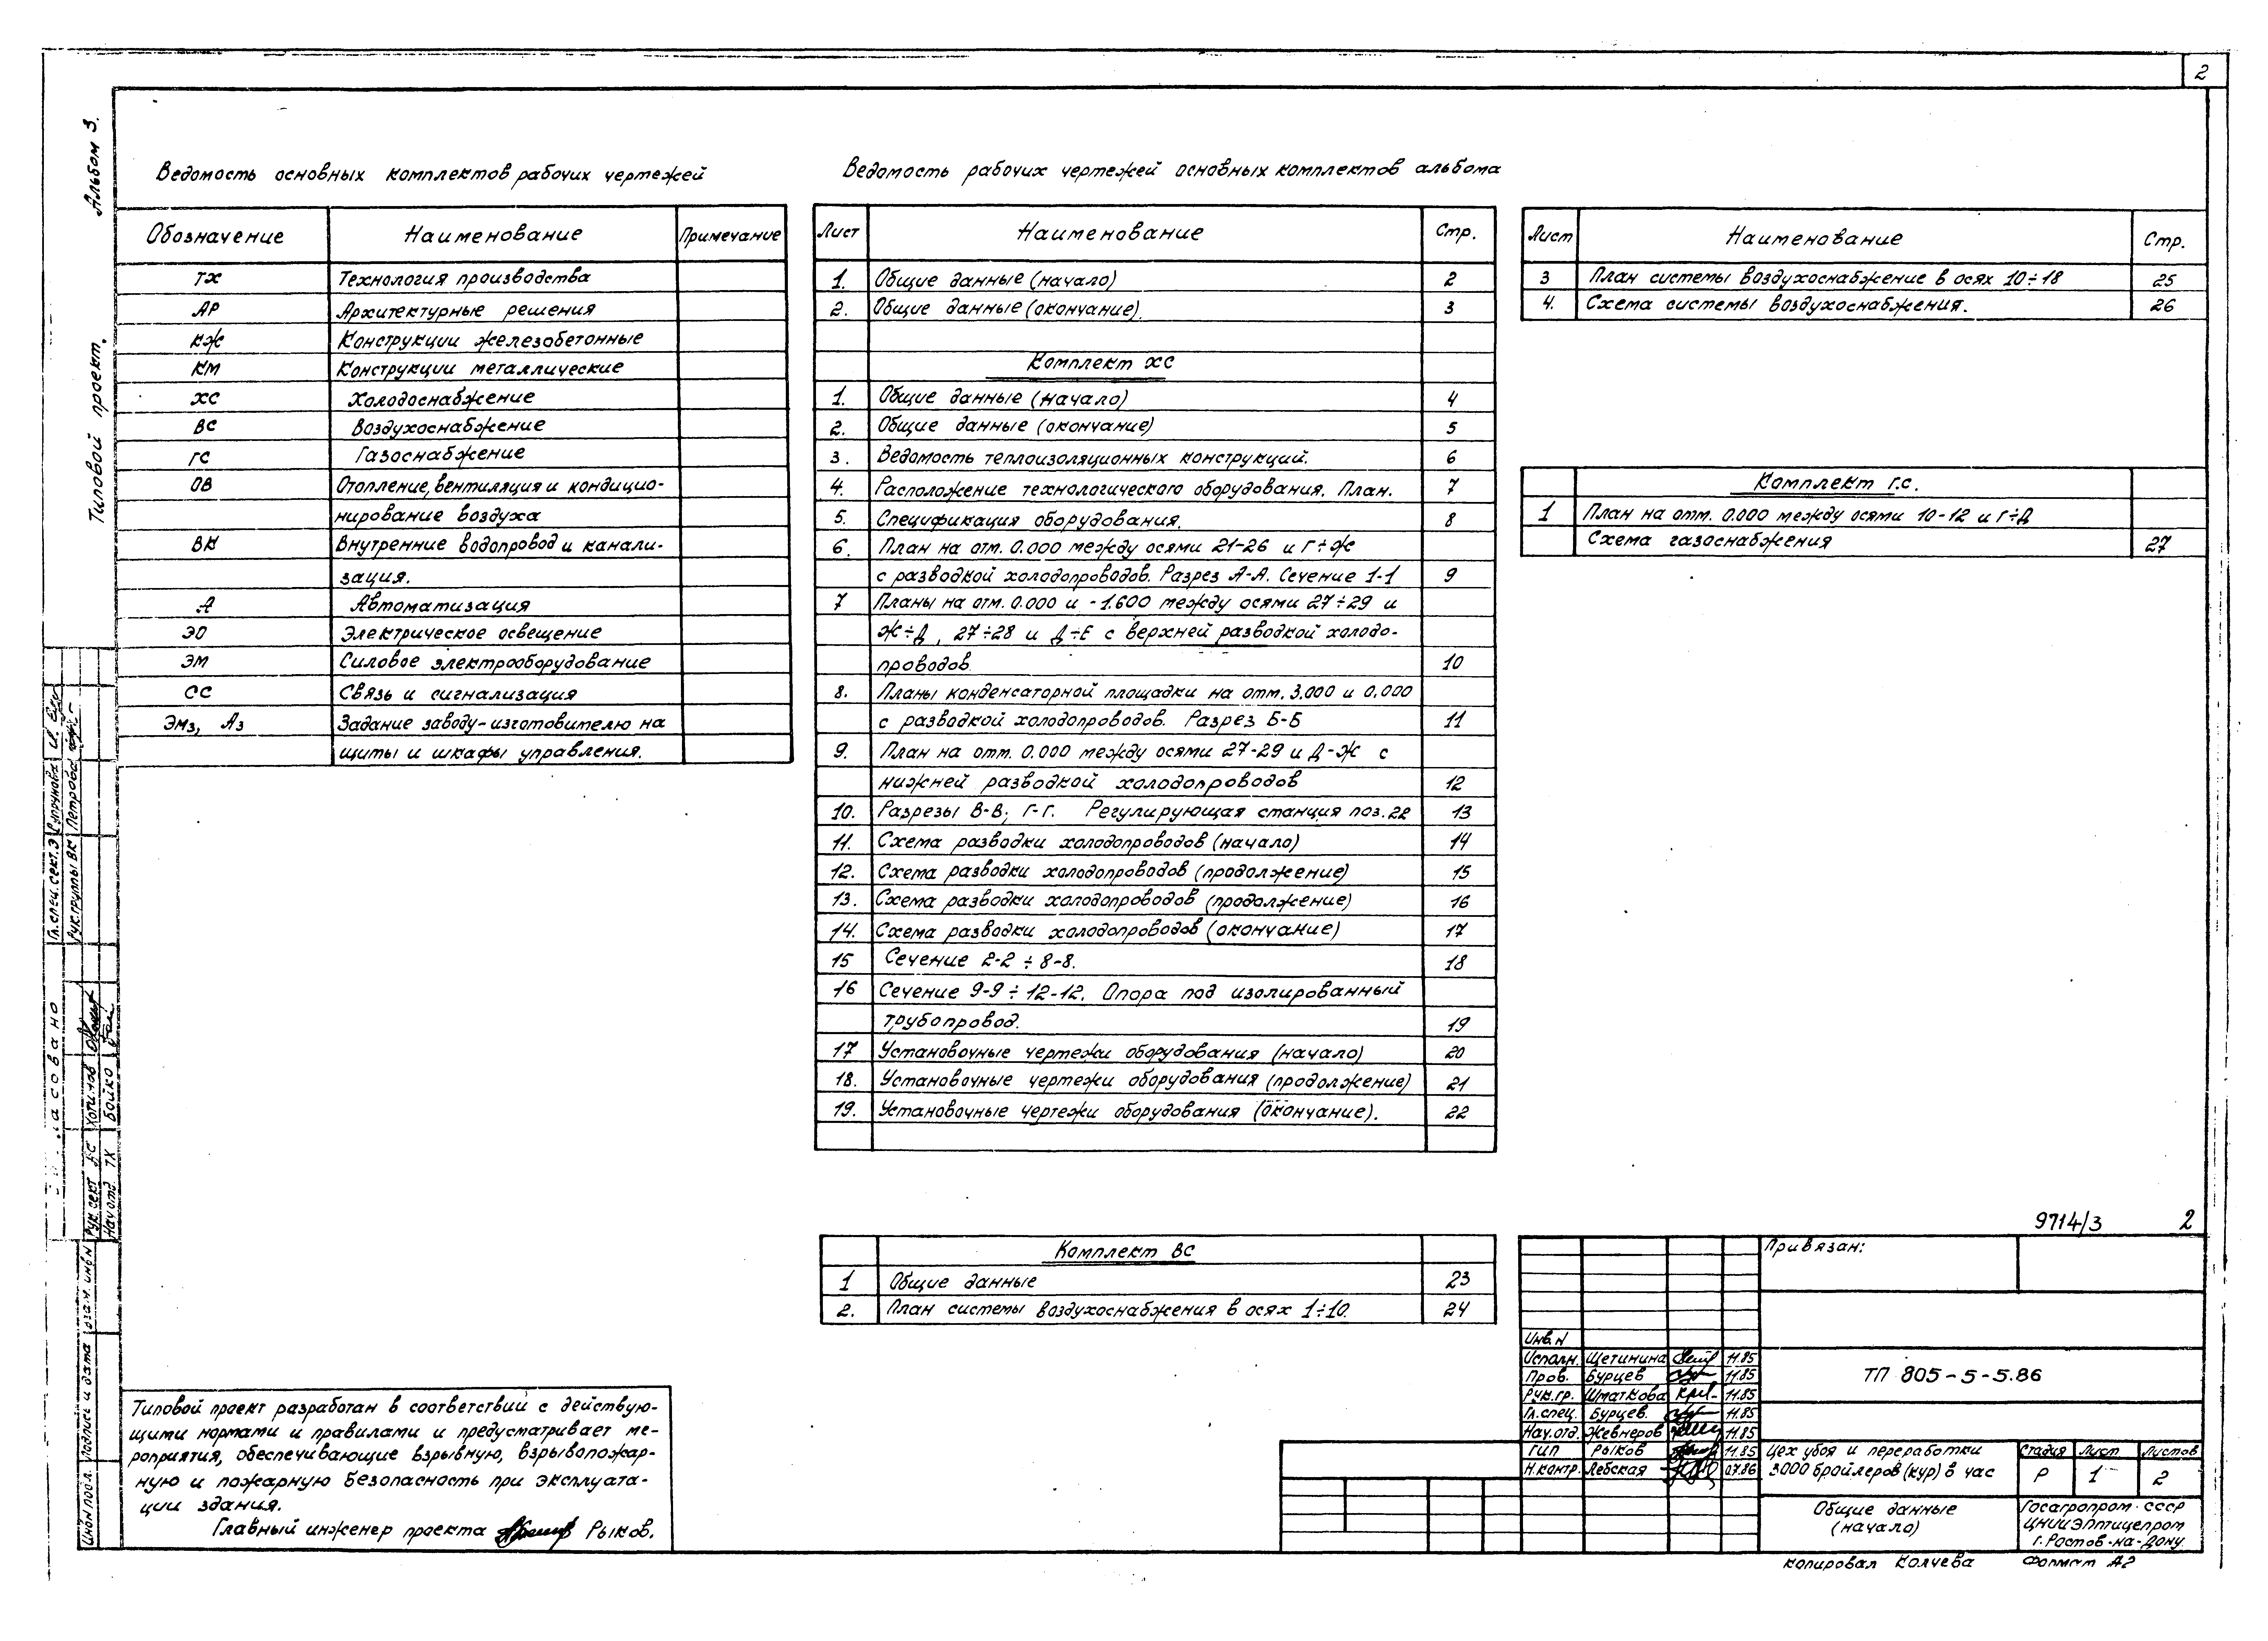 2
Альбом 3.
Типовой проект.
Ведомость основных комплектов рабочих чертежей
Обозначение Наименование Примечание
ТХ Технология производства
АР Архитектурные решения
КЖ Конструкции железобетонные
КМ Конструкции металлические
ХС Холодоснабжение
ВС Воздухоснабжение
ГС Газоснабжение
ОВ Отопление, вентиляция и кондицио-
нирование воздуха
ВК Внутренние водопровод и канали-
зация.
А Автоматизация
ЭО Электрическое освещение
ЭМ Силовое электрооборудование
СС Связь и сигнализация
ЭМз, Аз Задание заводу-изготовителю на
щиты и шкафы управления.
Ведомость рабочих чертежей основных комплектов альбома
Лист Наименование Стр.
1. Общие данные (начало) 2
2. Общие данные (окончание). 3
Комплект ХС
1. Общие данные (начало) 4
2. Общие данные (окончание) 5
3. Ведомость теплоизоляционных конструкций. 6
4. Расположение технологического оборудования. План. 7
5. Спецификация оборудования. 8
6. План на отм. 0.000 между осями 21-26 и Г÷Ж
с разводкой холодопроводов. Разрез А-А. Сечение 1-1 9
7 Планы на отм. 0.000 и -1.600 между осями 27÷29 и
Ж÷Д, 27÷28 и Д÷Е с верхней разводкой холодо-
проводов 10
8. Планы конденсаторной площадки на отм. 3.000 и 0.000
с разводкой холодопроводов. Разрез Б-Б 11
9. План на отм. 0.000 между осями 27-29 и Д-Ж с
нижней разводкой холодопроводов 12
10. Разрезы В-В; Г-Г. Регулирующая станция поз. 22 13
11. Схема разводки холодопроводов (начало) 14
12. Схема разводки холодопроводов (продолжение) 15
13. Схема разводки холодопроводов (продолжение) 16
14. Схема разводки холодопроводов (окончание) 17
15 Сечение 2-2 ÷ 8-8. 18
16 Сечение 9-9 ÷ 12-12. Опора под изолированный
трубопровод. 19
17 Установочные чертежи оборудования (начало) 20
18. Установочные чертежи оборудования (продолжение) 21
19. Установочные чертежи оборудования (окончание). 22
Комплект ВС
1 Общие данные 23
2. План системы воздухоснабжения в осях 1÷10. 24
Лист Наименование Стр.
3 План системы воздухоснабжение в осях 10÷18 25
4. Схема системы воздухоснабжения. 26
Комплект г.с.
1 План на отм. 0.000 между осями 10-12 и Г÷Д
Схема газоснабжения 27
Типовой проект разработан в соответствий с действую-
щими нормами и правилами и предусматривает ме-
роприятия, обеспечивающие взрывную, взрывопожар-
ную и пожарную безопасность при эксплуата-
ции здания.
Главный инженер проекта Рыков.
9714/3 2
Привязан:
Инв.N
Исполн. Щетинина 11.85
Пров. Бурцев 11.85
Рук.гр. Шматкова 11.85
Гл.спец. Бурцев. 11.85
Нач.отд. Жевнеров 11.85
ГИП Рыков 11.85
Н.контр. Лебская 07.86
ТП 805-5-5.86
Цех убоя и переработки
3000 бройлеров (кур) в час
Стадия Лист Листов
Р 1 2
Общие данные
(начало)
Госагропром СССР
ЦНИИЭПптицепром
г. Ростов-на-Дону
Копировал Колчева Формат А2
Гл.спец.сект.Э
Рук.группы ВК Петрова
Рук.сект ХС Хотинов
Нач.отд. ТХ Бойко
Взам. инв N
Подпись и дата
Инв N подл.